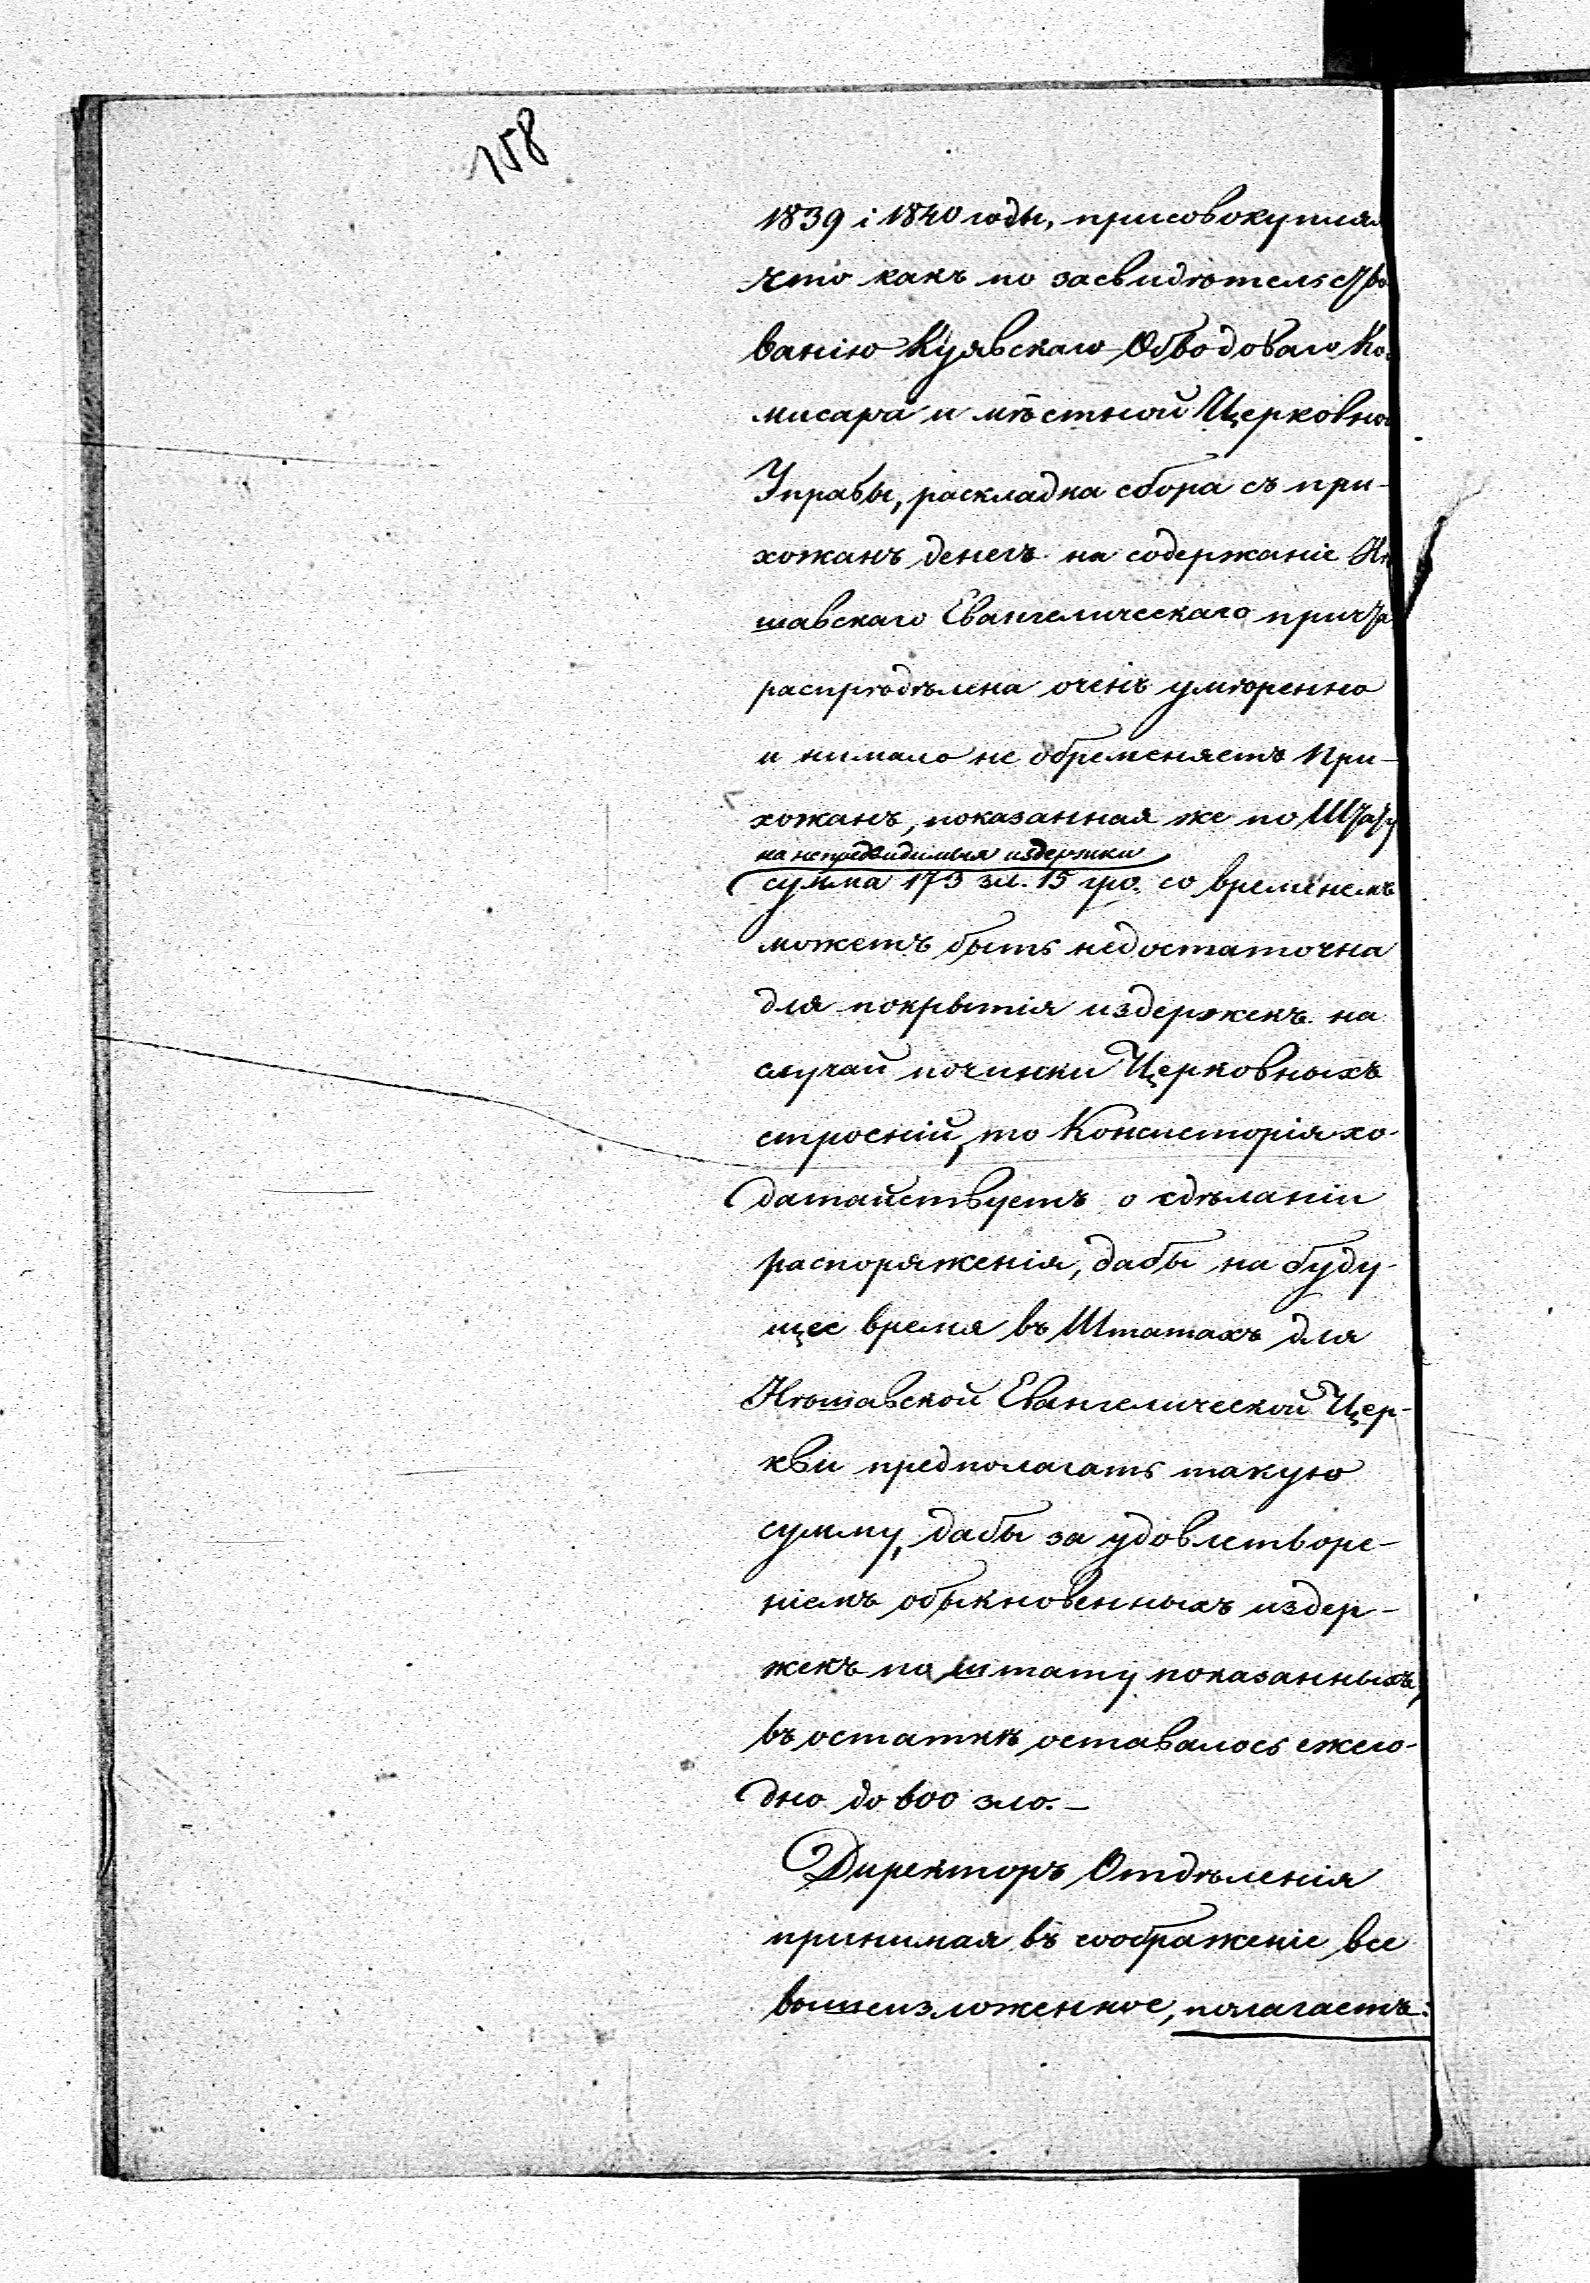 158
1839 і 1840 годы, присовокупляя
что какъ по засвидѣтельство
ванію Куявскаго Обводоваго Ко
мисара и мѣстной Церковной
Управы, раскладка сбора съ при-
хожанъ денегъ на содержаніе Нѣ
шавскаго Евангелическаго причта
распредѣлена очень умѣренно
и нимало не обременяетъ При-
хожанъ, показанная же по Штату
на непредвидимыя издержки
сумма 173 зл. 15 гро. со временемъ
можетъ быть недостаточна
для покрытія издержекъ на
случай починки Церковныхъ
строеній, то Консисторія хо-
датайствуетъ о сдѣланіи
распоряженія, дабы на буду-
щее время въ Штатахъ для
Нѣшавской Евангелической Цер-
кви предполагать такую
сумму, дабы за удовлетворе-
ніемъ обыкновенныхъ издер-
жекъ по штату показанныхъ,
въ остаткѣ оставалось ежего-
дно до 600 зло. –
Директоръ Отдѣленія
принимая въ соображеніе все
вышеизложенное, полагаетъ: